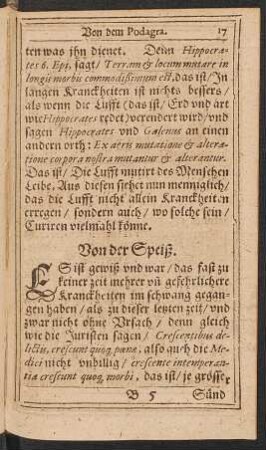 Von dem Podagra. 17
ten was jhn dienet. Denn Hippocra-
tes 6. Epi. sagt / Terram & locum mutare in
longis morbis commodißimum est, das ist / In
langen Kranckheiten ist nichts bessers /
als wenn die Lufft / das ist / Erd vnd art
wie Hippocrates redet / verendert wird / vnd
sagen Hippocrates vnd Galenus an einen
andern orth: Ex aeris mutatione & altera-
tione corpora nostra mutantur & alterantur.
Das ist / Die Lufft mutirt des Menschen
Leibe. Aus diesen siehet nun menniglich /
das die Lufft nicht allein Kranckheiten
erregen / sondern auch / wo solche sein /
Curiren vielmahl könne.
Von der Speiß.
ES ist gewiß vnd war / das fast zu
keiner zeit mehrer vñ gefehrlichere
Kranckheiten im schwang gegan-
gen haben / als zu dieser letzten zeit / vnd
zwar nicht ohne Vrsach / denn gleich
wie die Juristen sagen / Crescentibus de-
lictis, crescunt quoq; pœnæ, also auch die Me-
dici nicht vnbillig / crescente intemperan-
tia crescunt quoq; morbi, das ist / je grösser
B 5 Sünd